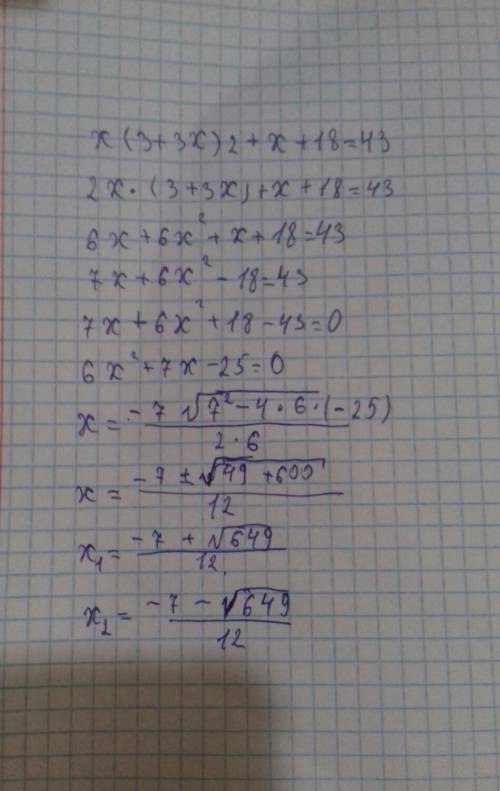 x(3+3x)2+x+18=43
2x·(3+3x)+x+18=43
6x+6x²+x+18=43
7x+6x²-18=43
7x+6x²+18-43=0
6x²+7x-25=0
x=\frac{-7 \sqrt{7²-4·6·(-25)}}{2·6}
x=\frac{-7±\sqrt{49+600}}{12}
x₁=\frac{-7+\sqrt{649}}{12.}
x₂=\frac{-7-\sqrt{649}}{12}